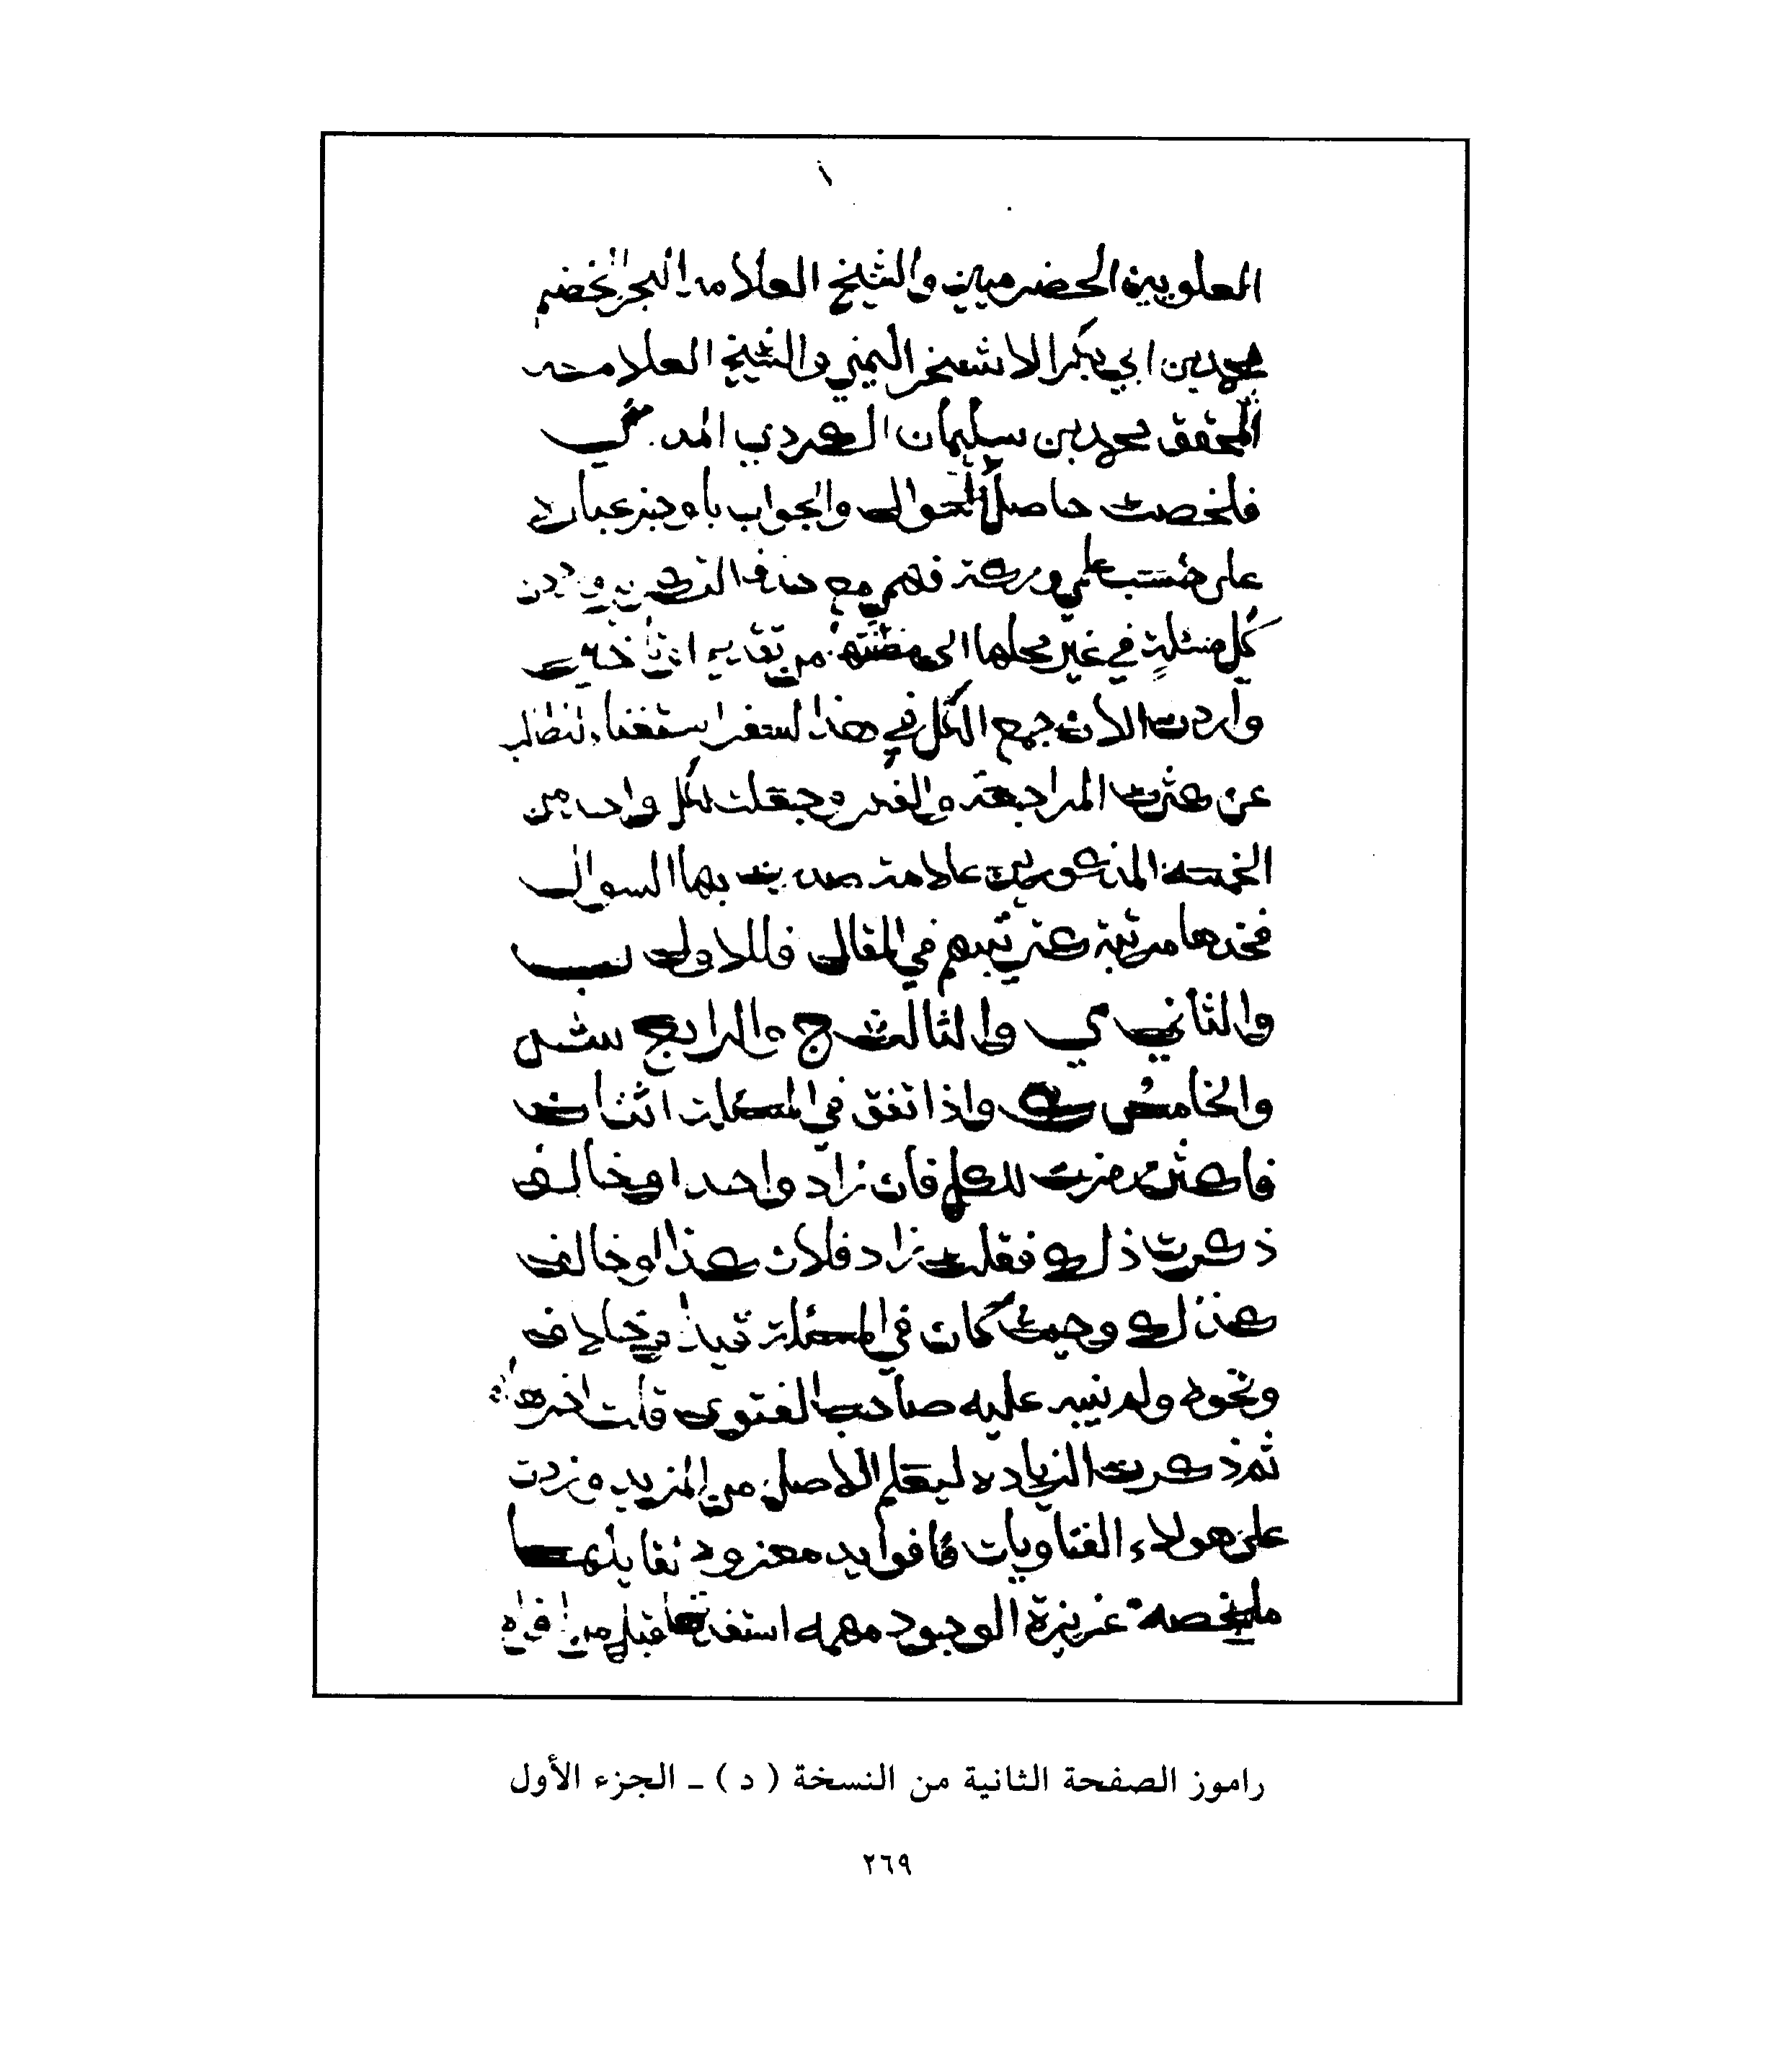 ١
العلويين الحضرميين والشيخ العلامه البحر الخضم
محمد بن ابي بكر الاشخر اليمني والشيخ العلامه
المحقق محمد بن سليمان الكردي المدني
فلخصت حاصل السوال والجواب باوجز عباره
على حسب علمي وركة فهمي مع حذف التكرير وردت
كل مسئلة في غير محلها الى مظنتها من تقديم او تأخير
واردت الان جمع الكل في هذا السفر استغناء للطالب
عن كثرت المراجعة والفكر وجعلت لكل واحد من
الخمسه المذكورين علامة صدرت بها السوال
فخذها مرتبة كترتيبهم في المقال فللاول ب
والثاني ي والثالث ج والرابع ش
والخامس ك واذا اتفق في المسئلة اثنان
فاكثر رمزت للكل فان زاد واحدا وخالف
ذكرت ذلك فقلت زاد فلان كذا او خالف
كذلك وحيث كان في المسئلة قيد او خلاف
ونحوه ولم ينبه عليه صاحب الفتوى قلت اخرها
ثم ذكرت الزياده ليعلم الاصل من المزيد وزدت
على هولاء الفتاويات فوايد معزوة لقايلها
ملخصه عزيزة الوجود مهمه استفدتها قبل من افواه
راموز الصفحة الثانية من النسخة ( د ) ـ الجزء الأول
٢٦٩